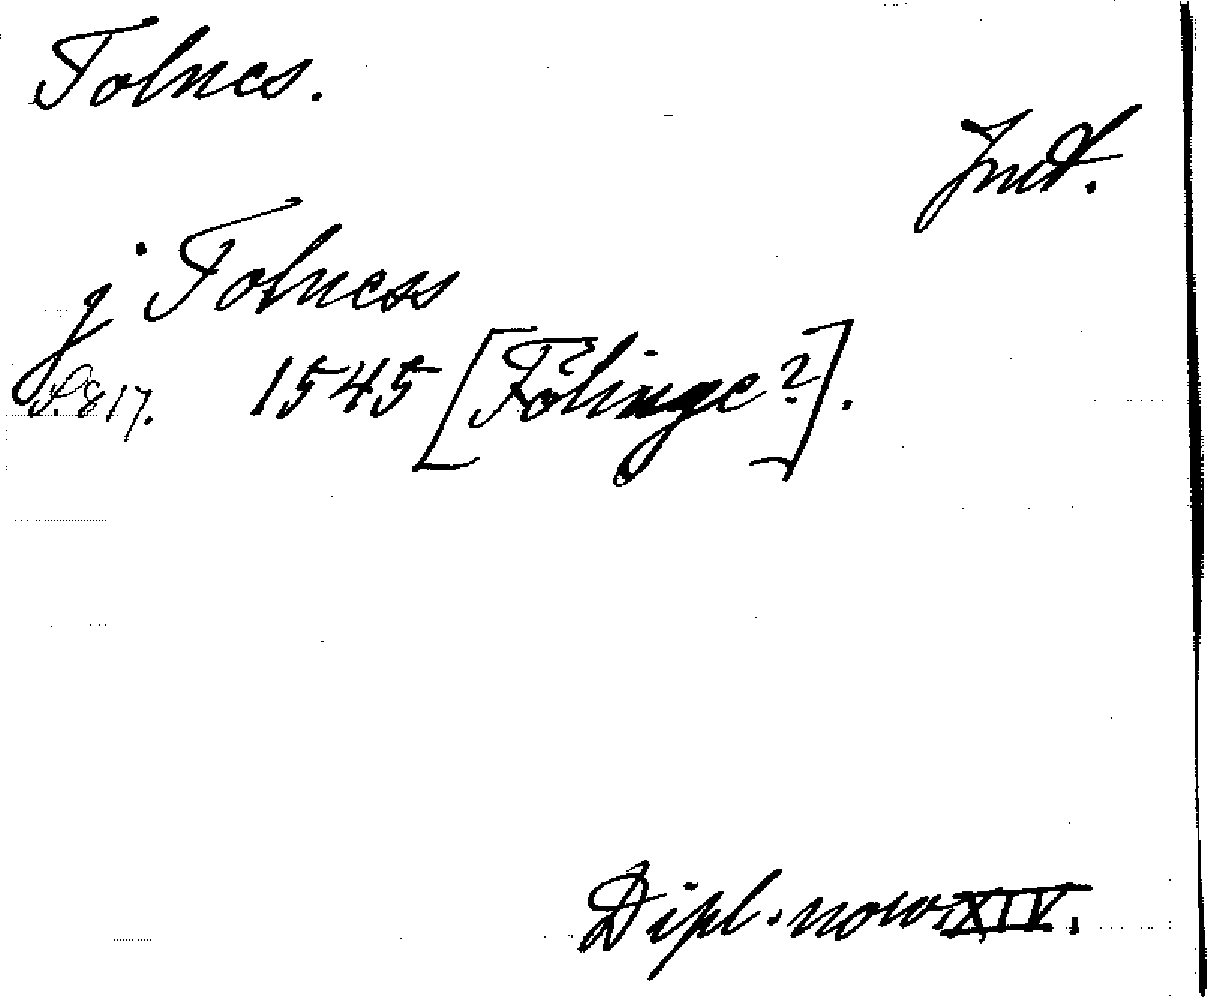 Tolnes.
Jmt.
j Tolness
s. 817. 1545 [Fölinge?].
Dipl. norv. XIV.